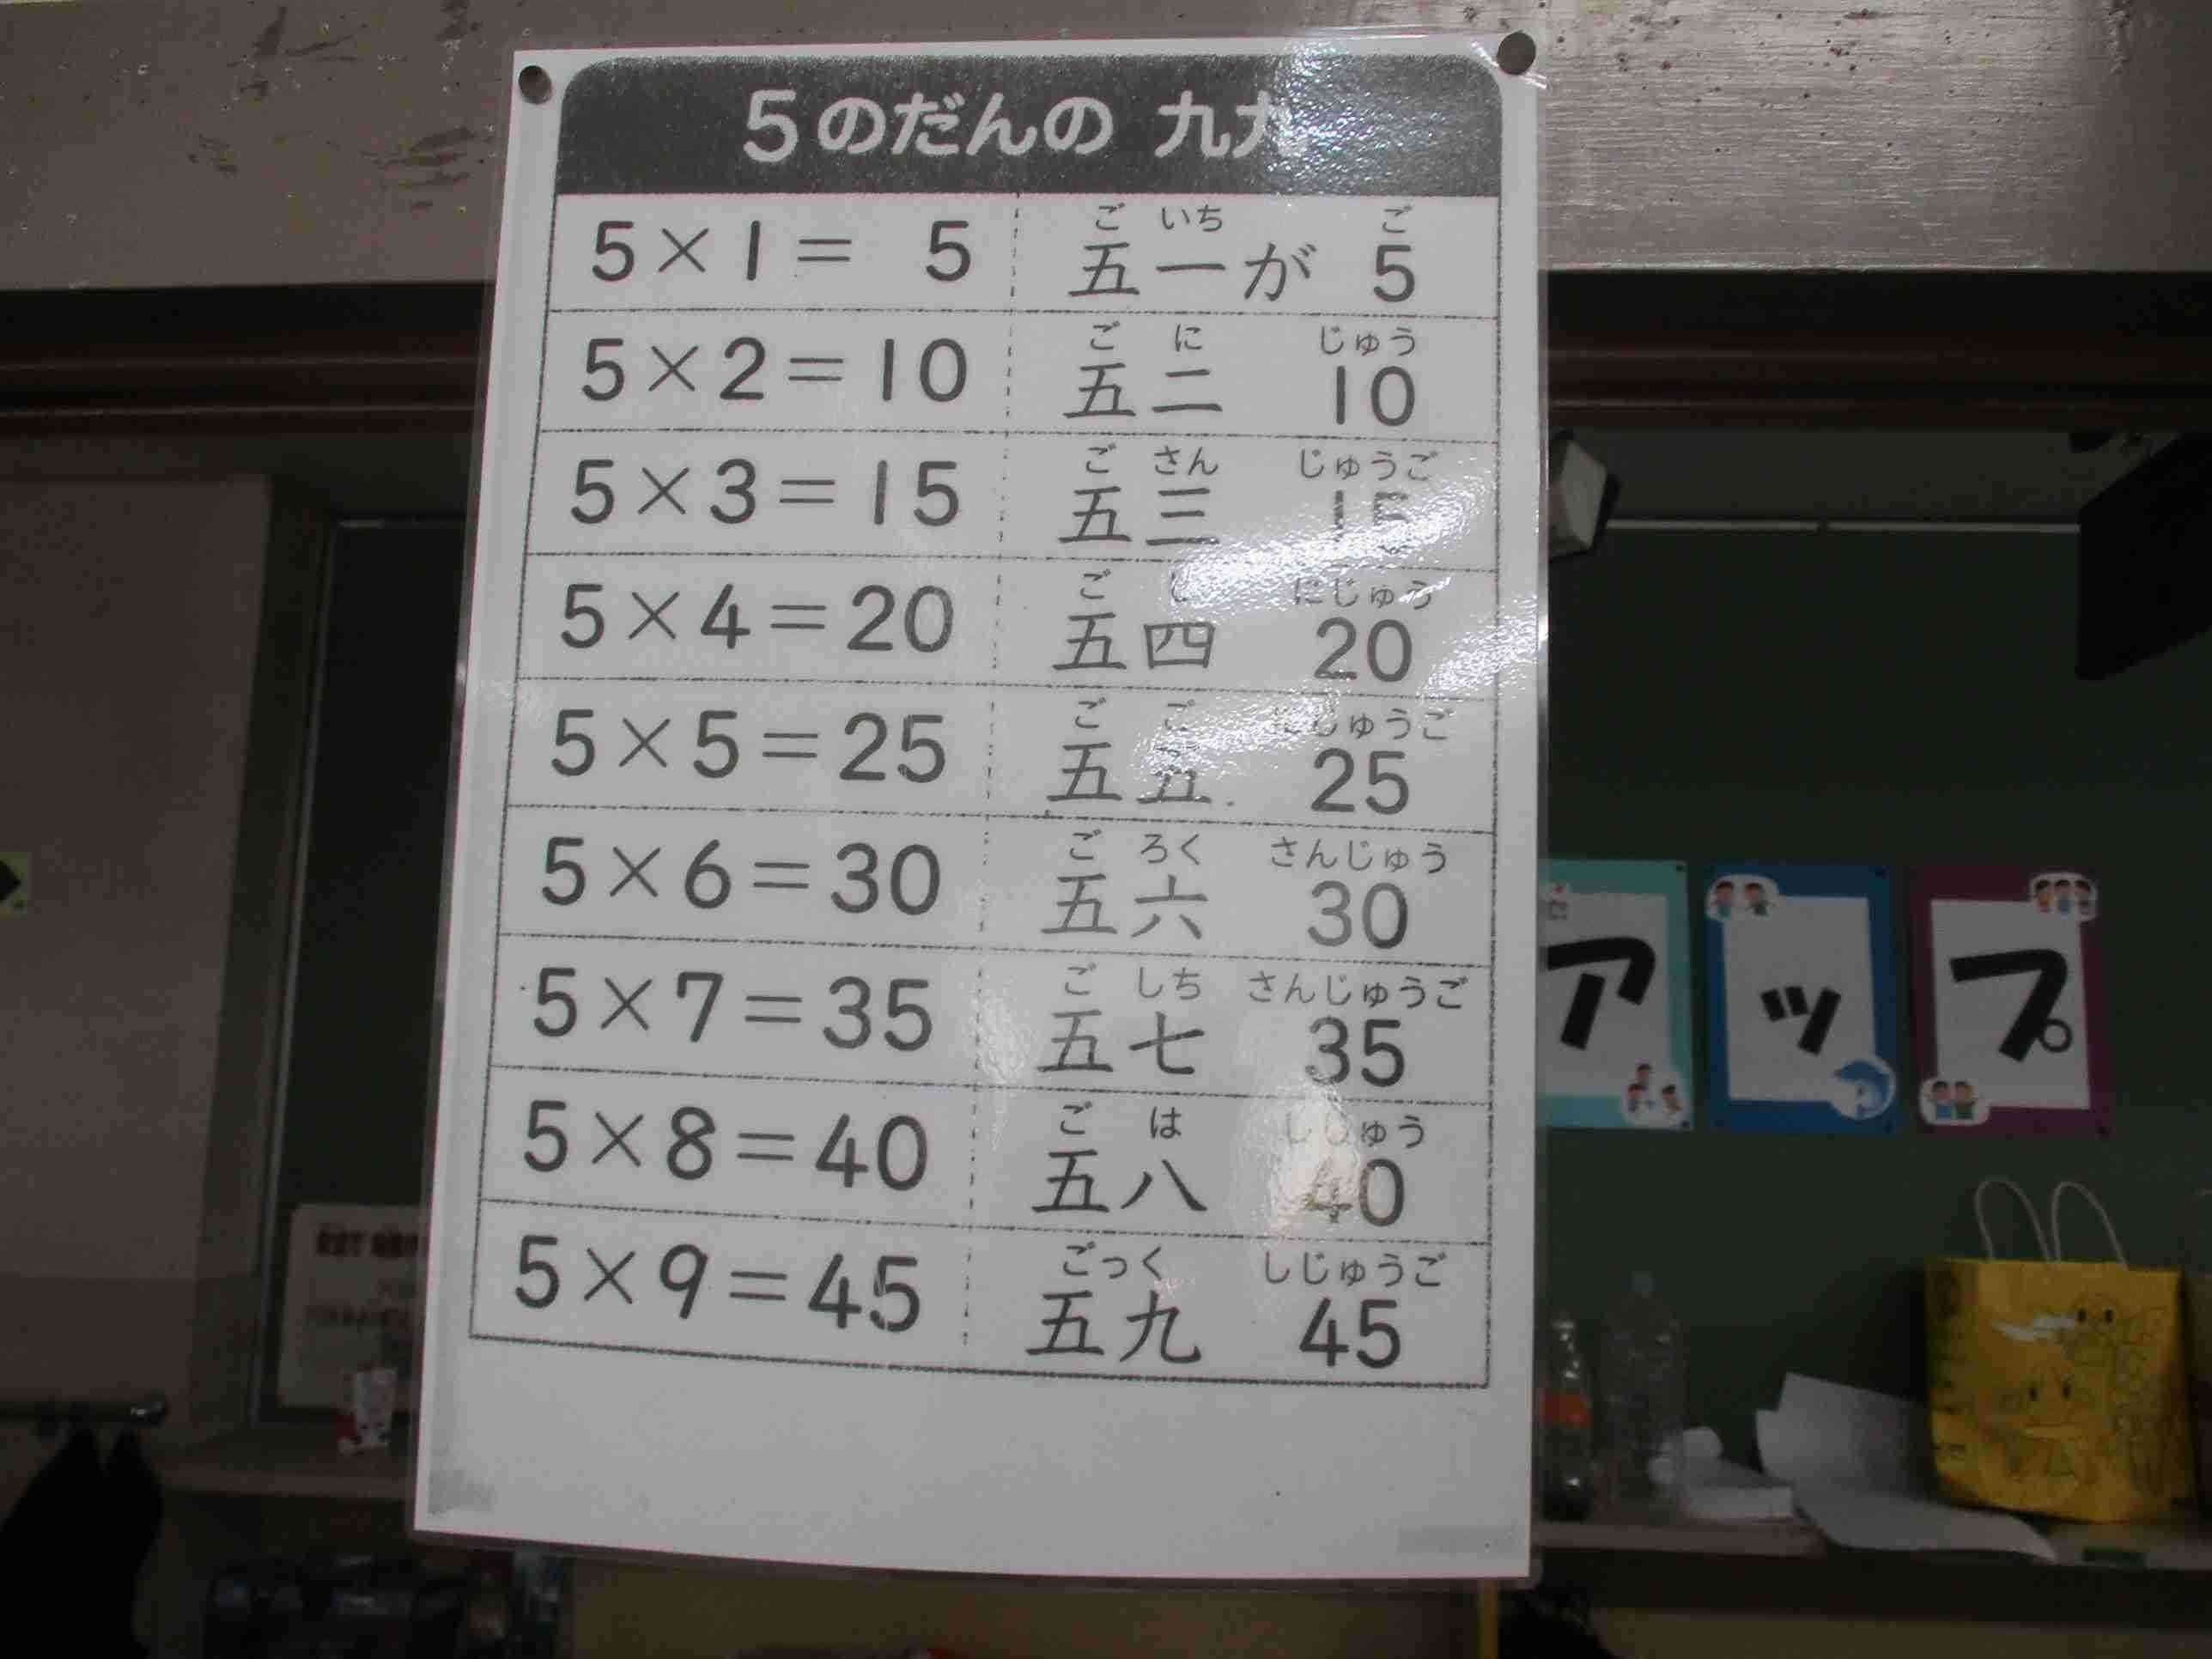 5のだんの 九九
5×1= 5 ごいち ご
五一が 5
5×2=10 ごに じゅう
五二 10
5×3=15 ごさん じゅうご
五三 15
5×4=20 ごし にじゅう
五四 20
5×5=25 ごご にじゅうご
五五 25
5×6=30 ごろく さんじゅう
五六 30
5×7=35 ごしち さんじゅうご
五七 35
5×8=40 ごは しじゅう
五八 40
5×9=45 ごっく しじゅうご
五九 45
アップ